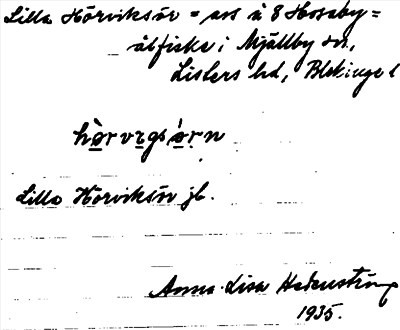 Lilla Hörviksör = art å 8 Hosaby=
ålfiske i Mjällby sn,
Listers hd, Blekinge l
hòrvıgsǿrn
Lilla Hörviksör jb.
Anna-Lisa Hedenström
1935.